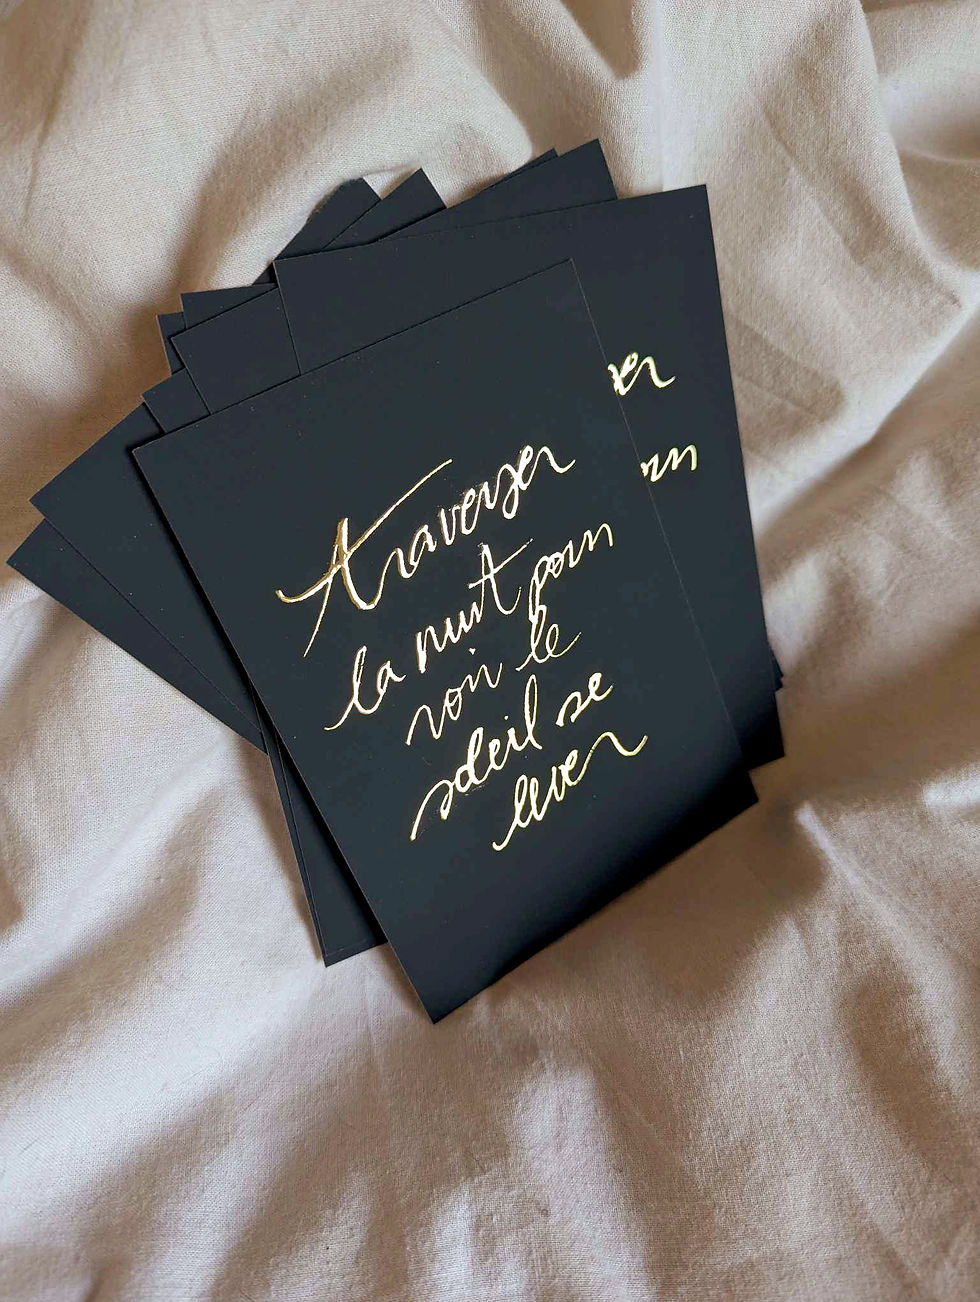 Traverser
la nuit pour
voir le
soleil se
lever
er